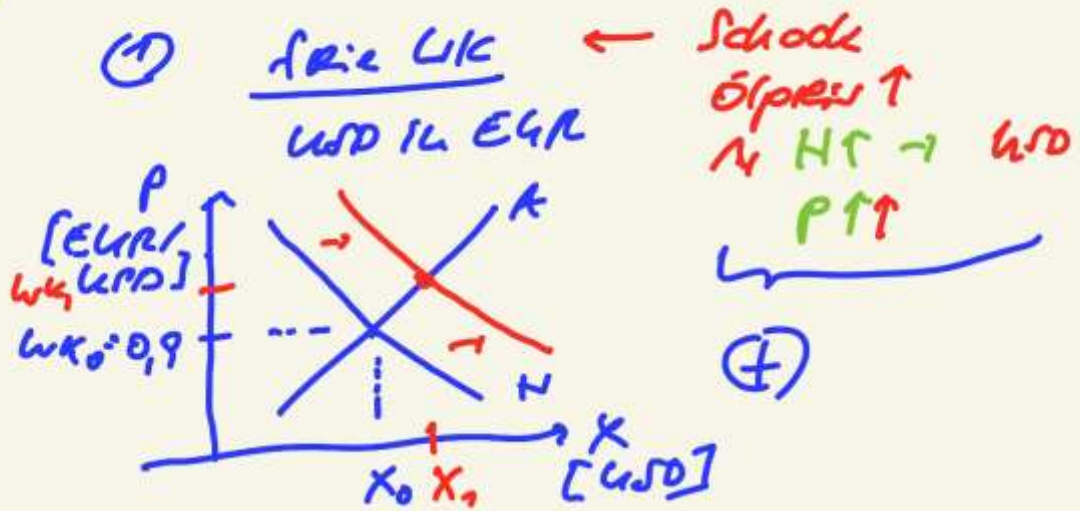 ① freie WK ← Schock
Ölpreis ↑
USD in EUR
N H↑ → USD
P ↑↑
P
[EUR/
USD]
WK₁
WK₀=0,9
A
N
X₀ X₁
X
[USD]
⊕